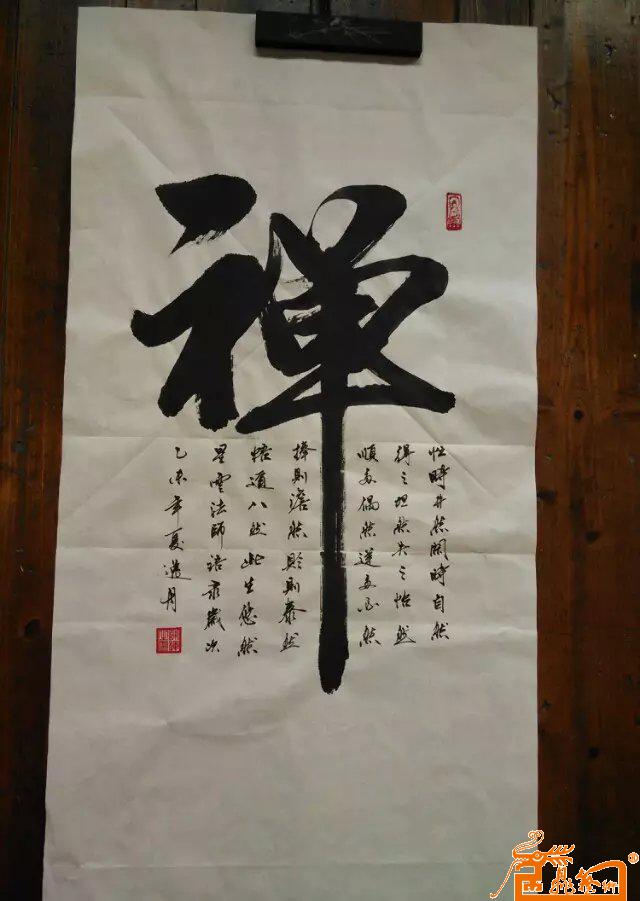 禅
忙時井然閑時自然
得之坦然失之怡然
順多偶然逆多必然
捧則淡然貶則泰然
悟道八然此生悠然
星雲法師語录歲次
乙未年夏月